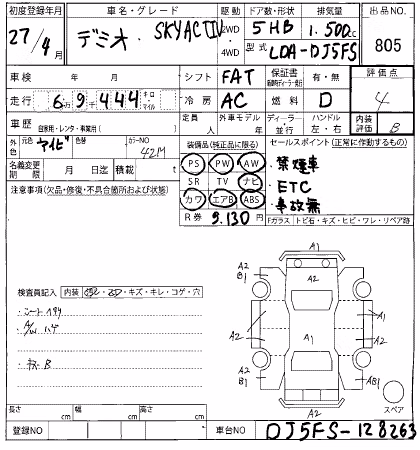 初度登録年月 車名・グレード 駆動 ドア数・形状 排気量 出品NO.
27/4月 デミオ SKYACTIV 2WD 4WD 5HB 1.500cc 805
型式 LDA-DJ5FS
車検 年 月 シフト FAT 保証書 有・無 評価点
走行 6万9444キロマイル 冷房 AC 燃料 D 4
車歴 自家用・レンタ・事業用( ) 定員 人 外車モデル 年 ディーラー・並行 ハンドル 左・右 内装評価 B
外色 元色 色替 カラーNO 42M
名義変更期限 月 日迄 積載量 t
装備品(純正品に限る) セールスポイント(正常に作動するもの)
PS PW AW 禁煙車
SR TV ナビ ETC
カワ エアB ABS 事故無
R券 9.130円
注意事項(欠品・修復・不具合箇所および状態)
Fガラス・トビ石・キズ・ヒビ・ワレ・リペア跡
検査員記入 内装 ・キズ・キレ・コゲ・穴
キズB
A1
A2
B1
A2
A2
A1
A2
A1
A2
A2
B1
AB1
A2
スペア
長さ cm 幅 cm 高さ cm
登録NO 車台NO DJ5FS-128263